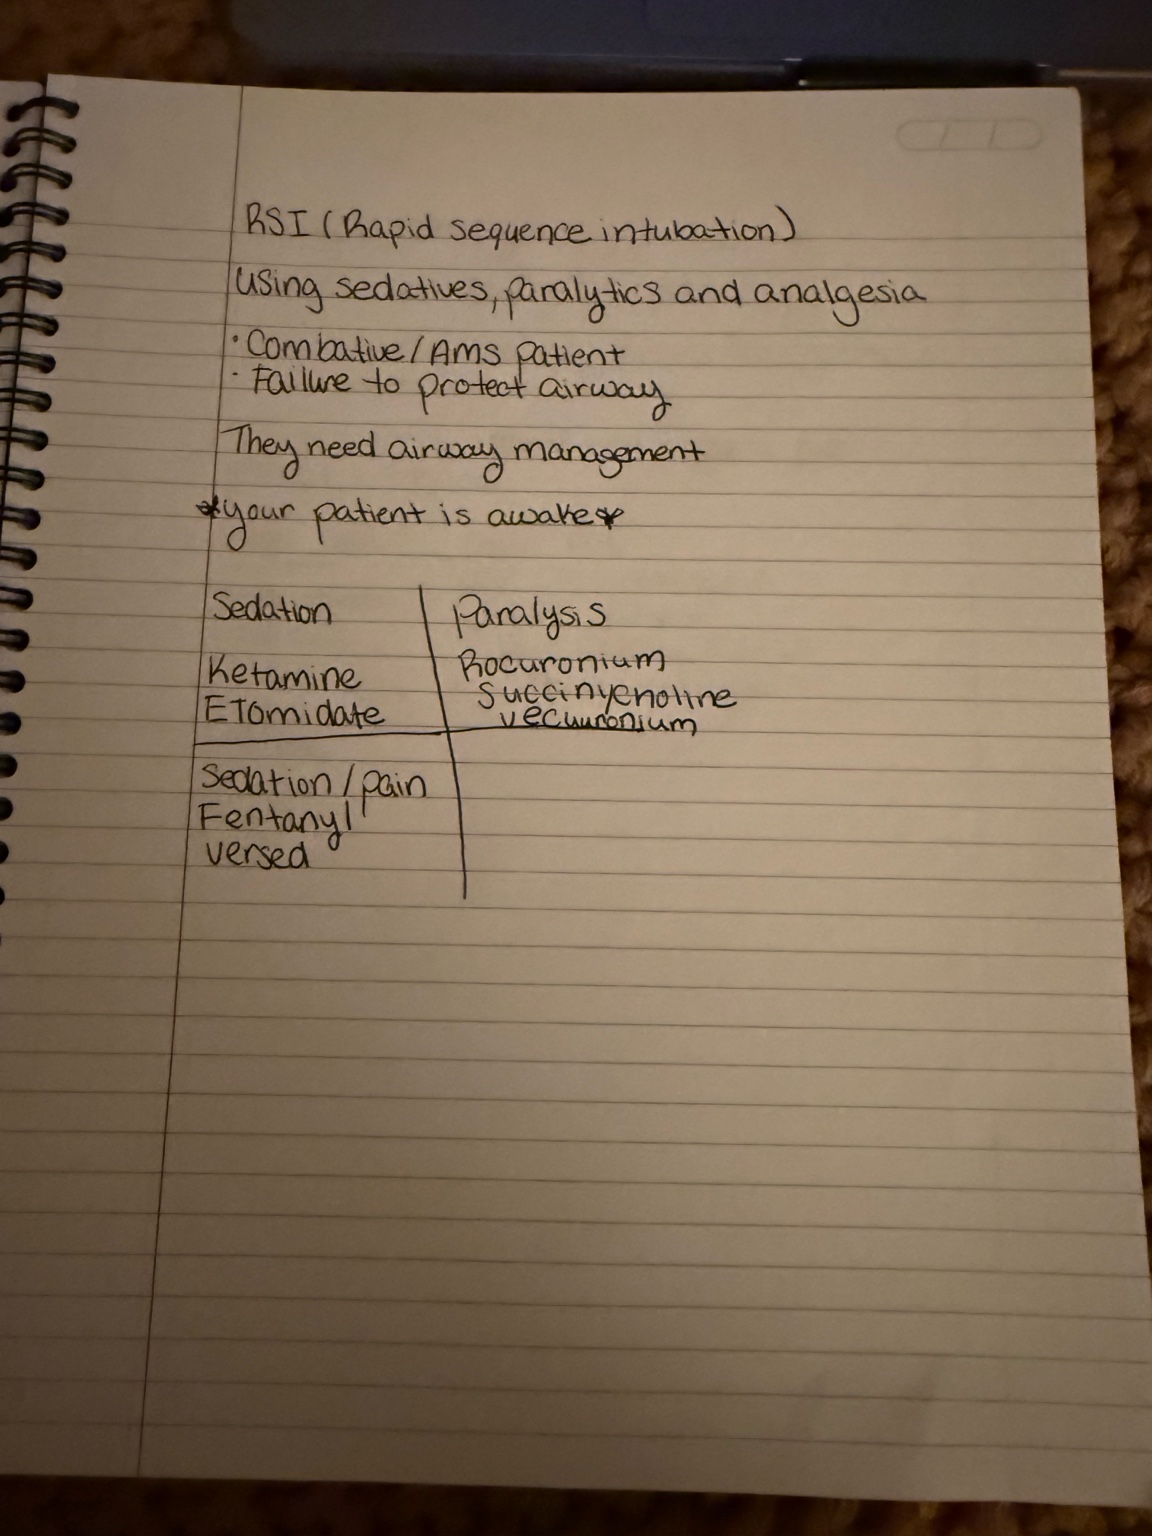 RSI (Rapid sequence intubation)
Using sedatives, paralytics and analgesia
· Combative / AMS patient
· Failure to protect airway
They need airway management
*your patient is awake*
Sedation
Paralysis
Ketamine
Rocuronium
ETomidate
Succinycholine
vecuuronium
Sedation / pain
Fentanyl
versed